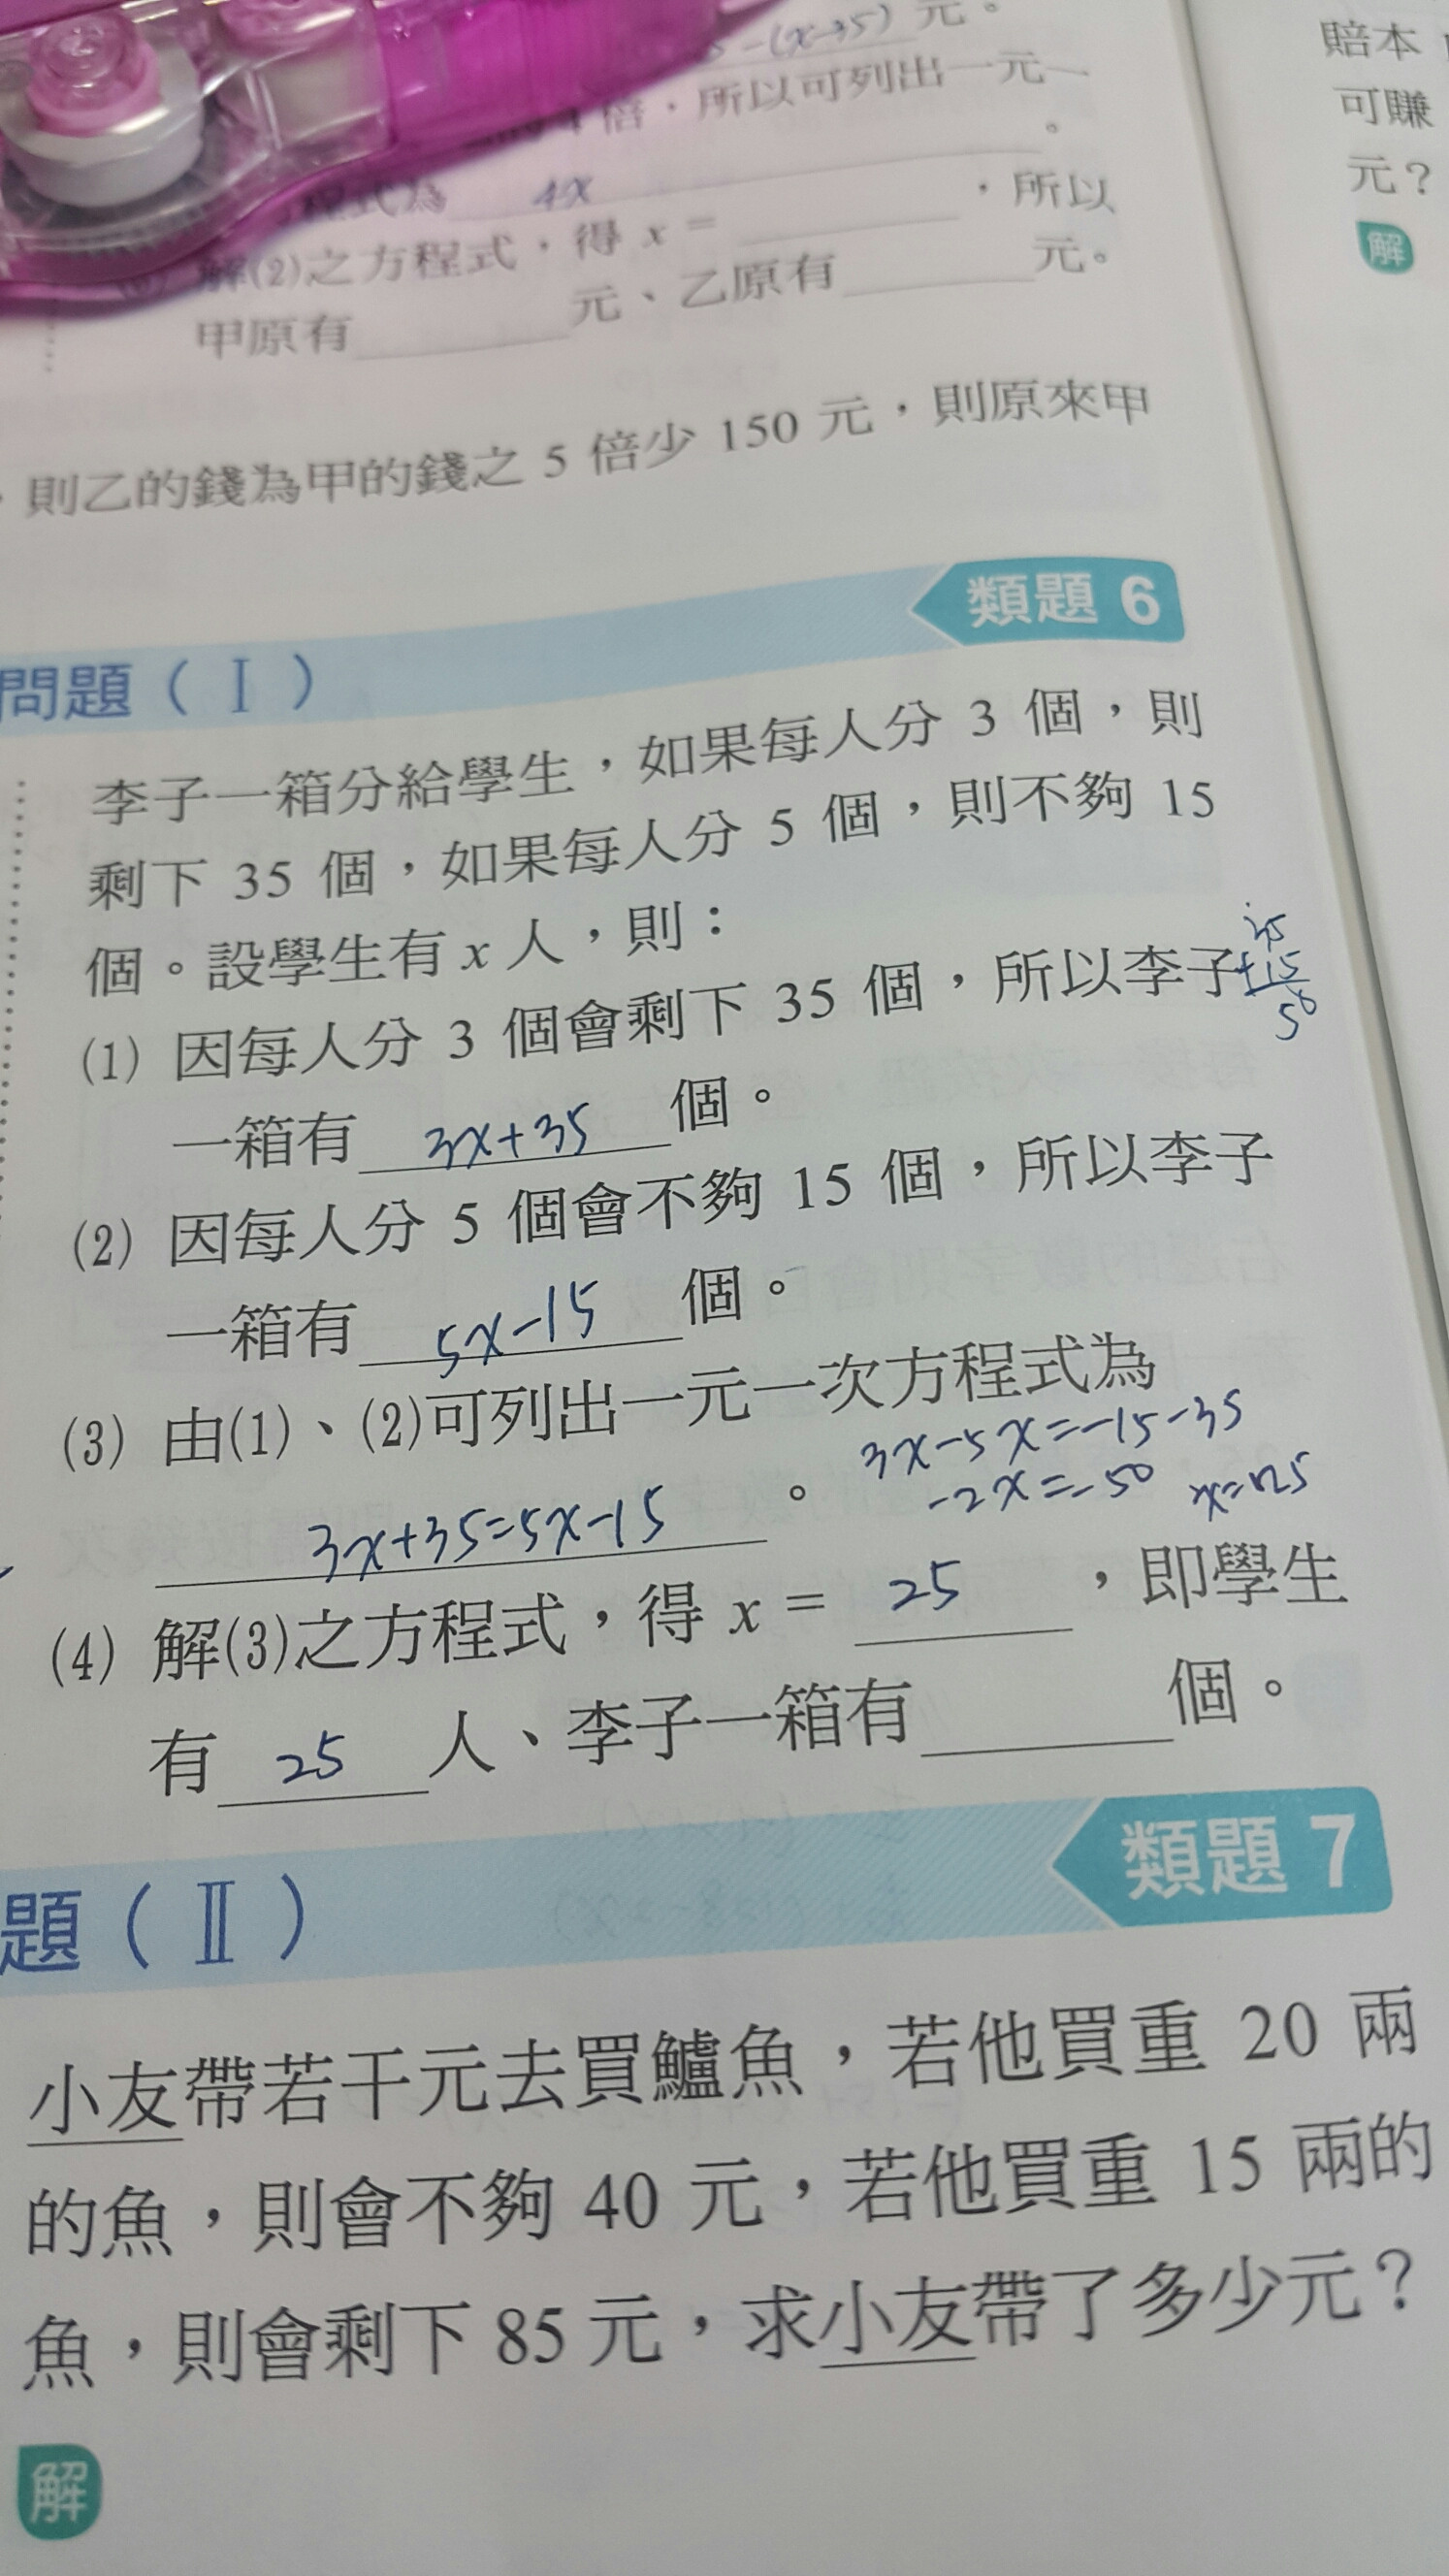 -(x-35) 元。
倍，所以可列出一元一
程式為 4x 。
解(2)之方程式，得 x = ，所以
甲原有 元、乙原有 元。
，則乙的錢為甲的錢之 5 倍少 150 元，則原來甲
類題 6
問題（Ⅰ）
李子一箱分給學生，如果每人分 3 個，則
剩下 35 個，如果每人分 5 個，則不夠 15
個。設學生有 x 人，則：
35
+15
50
(1) 因每人分 3 個會剩下 35 個，所以李子
一箱有 3x+35 個。
(2) 因每人分 5 個會不夠 15 個，所以李子
一箱有 5x-15 個。
(3) 由(1)、(2)可列出一元一次方程式為
3x+35=5x-15 。
3x-5x=-15-35
-2x=-50 x=25
(4) 解(3)之方程式，得 x = 25 ，即學生
有 25 人、李子一箱有 個。
類題 7
題（Ⅱ）
小友帶若干元去買鱸魚，若他買重 20 兩
的魚，則會不夠 40 元，若他買重 15 兩的
魚，則會剩下 85 元，求小友帶了多少元？
解
賠本
可賺
元？
解